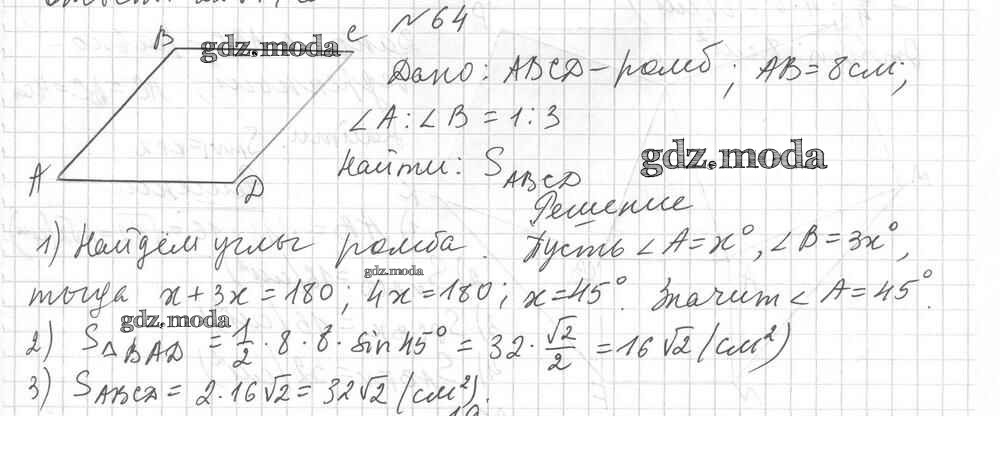 № 64
B C
gdz.moda
Дано: ABCD – ромб; AB = 8 см;
∠A : ∠B = 1 : 3
gdz.moda
Найти: S_ABCD
A D
Решение
1) Найдём углы ромба. Пусть ∠A = x°, ∠B = 3x°,
gdz.moda
тогда x + 3x = 180; 4x = 180; x = 45°. Значит ∠A = 45°.
gdz.moda
2) S_△BAD = 1/2 · 8 · 8 · sin 45° = 32 · √2/2 = 16√2 (см²)
3) S_ABCD = 2 · 16√2 = 32√2 (см²).